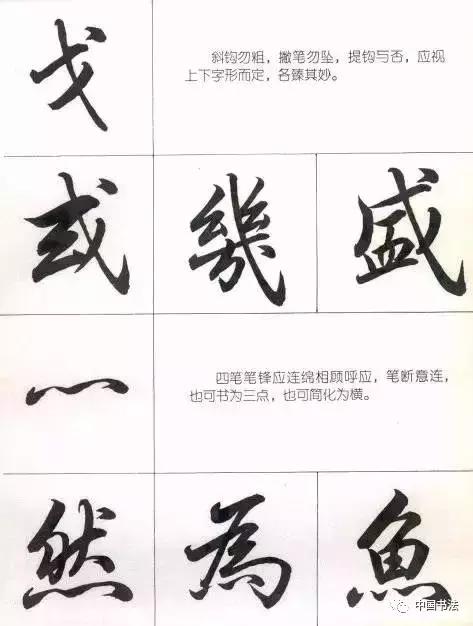 戈
斜钩勿粗，撇笔勿坠，提钩与否，应视
上下字形而定，各臻其妙。
或 幾 盛
灬
四笔笔锋应连绵相顾呼应，笔断意连，
也可书为三点，也可简化为横。
然 為 魚
中国书法